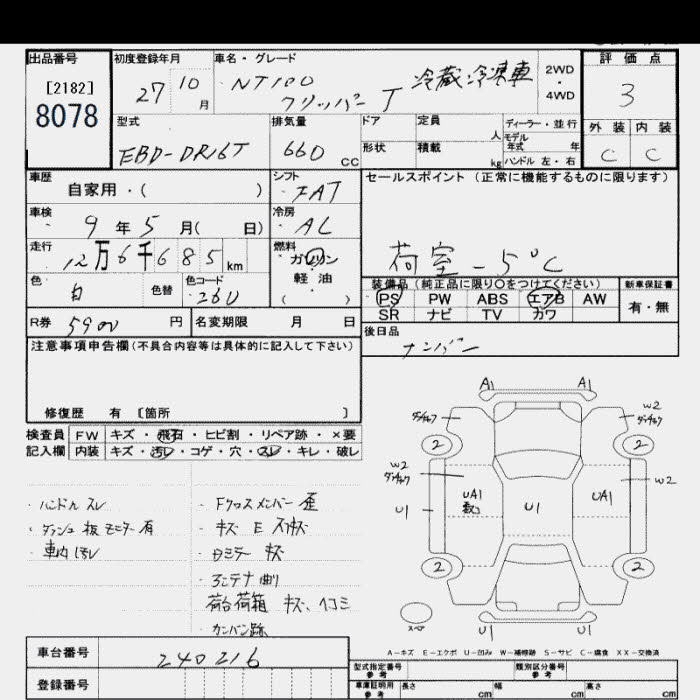 出品番号 初度登録年月 車名・グレード 評価点
[2182] 27 10月 NT100 クリッパー T 冷蔵冷凍車 2WD・4WD 3
8078 型式 排気量 ドア 定員 人 ディーラー・並行 外装 内装
EBD-DR16T 660 CC 形状 積載 kg モデル年式 年 ハンドル 左・右 C C
車歴 自家用・( ) シフト FAT セールスポイント (正常に機能するものに限ります)
車検 9年5月( 日) 冷房 AC
走行 12万6千685 km 燃料 ガソリン 軽油 ( ) 荷室 -5℃
色 白 色替 色コード 26U 装備品 (純正品に限り○をつけてください) 新車保証書
PS PW ABS エアB AW 有・無
SR ナビ TV カワ
R券 5900 円 名変期限 月 日 後日品
ナンバー
注意事項申告欄 (不具合内容等は具体的に記入して下さい)
修復歴 有 [箇所 ]
検査員 FW キズ・飛石・ヒビ割・リペア跡・×要
記入欄 内装 キズ・汚レ・コゲ・穴・スレ・キレ・破レ
・ハンドル スレ
・ダッシュ 板 モニター 有
・車内 汚レ
・Fクロスメンバー 歪
・キズ E
・ロミラー キズ
・アンテナ 曲り
荷台荷箱 キズ、ヘコミ
・カンバン跡
A1 A1
W2
2 2
W2 W2
U1 UA1 U1 UA1
2 2
スペア U1 U1
A－キズ E－エクボ U－凹み W－補修跡 S－サビ C－腐食 XX－交換済
車台番号 240216
登録番号
型式指定番号 参考 類別区分番号 参考
車庫証明用 参考 長さ cm 幅 cm 高さ cm